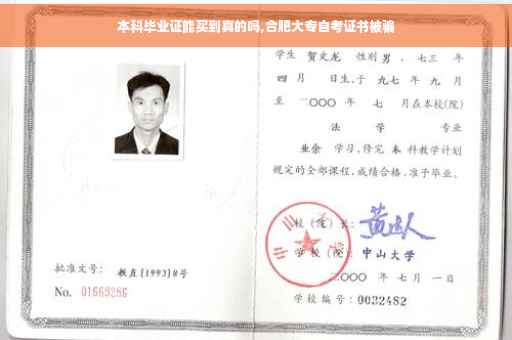 本科毕业证能买到真的吗,合肥大专自考证书被骗
学生 贺文龙 性别 男 、七三 年
四 月 日生,于 九七 年 九 月
至 二〇〇〇 年 七 月在本校(院)
法 学 专业
业余 学习,修完 本 科教学计划
规定的全部课程,成绩合格,准予毕业。
校(院)长:
学校(院): 中山大学
二〇〇〇 年 七 月 一 日
批准文号: 教直[1993]8号
No. 01669286
学校编号: 0032482